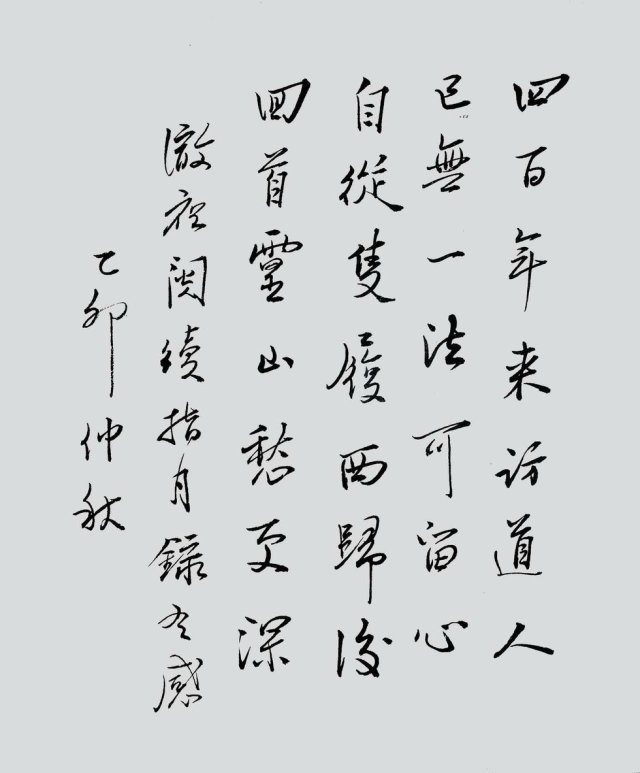 四百年来访道人
已無一法可留心
自從隻履西歸後
回首靈山愁更深
澈夜閱續指月錄有感
乙卯仲秋